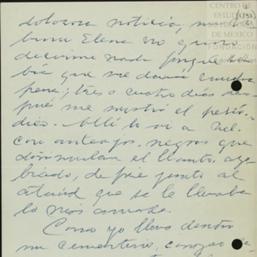 CENTRO DE
ESTUDIOS
DE MEXICO
dolorosa noticia,
buena Elena no quiso
decirme nada porque sabía
que me daría mucha
pena; tres o cuatro días des
pués me mostró el perió-
dico. Allí vi a
con anteojos negros que
disimulaban el llanto, ago
biado, de pie junto al
ataúd que se le llevaba
lo más amado.
Como yo llevo dentro
un cementerio,